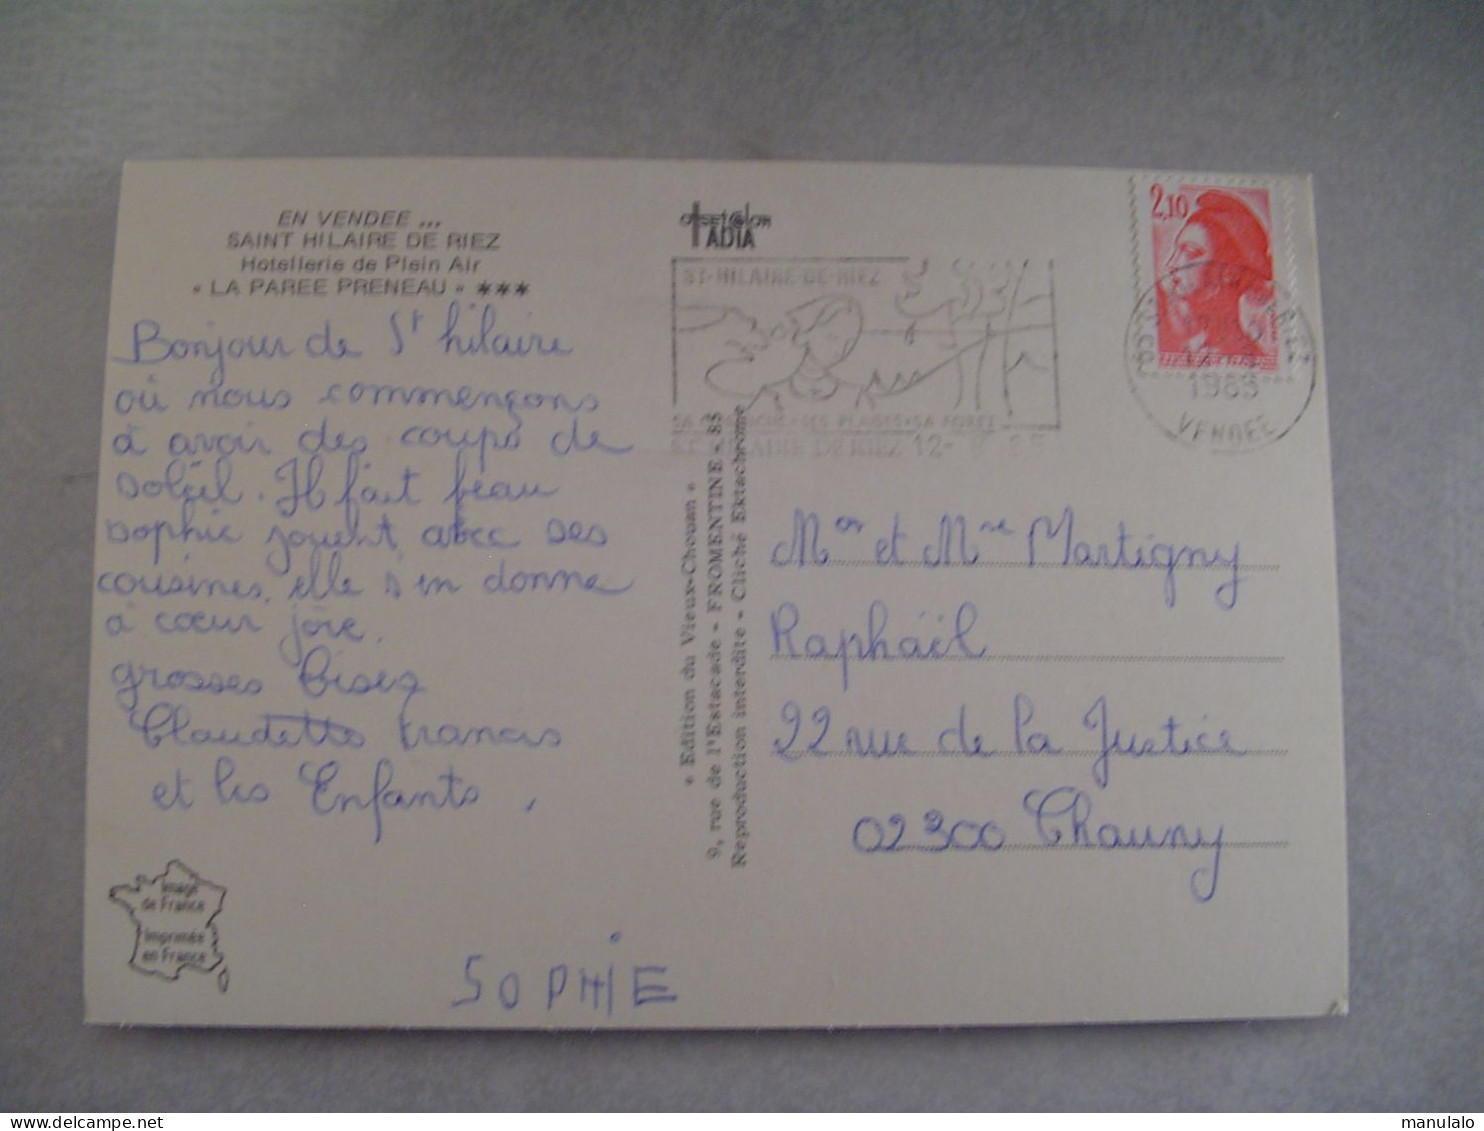 EN VENDEE ...
SAINT HILAIRE DE RIEZ
Hotellerie de Plein Air
« LA PAREE PRENEAU » ***
Bonjour de St hilaire
où nous commençons
à avoir des coups de
soleil. Il fait beau
sophie jouent avec ses
cousines, elle s'en donne
à coeur joie.
grosses bises
Claudette francis
et les Enfants,
Image
de France
Imprimée
en France
SOPHIE
« Edition du Vieux-Chouan »
9, rue de l'Estacade - FROMENTINE - 85
Reproduction interdite - Cliché Ektachrome
ADIA
ST-HILAIRE-DE-RIEZ
SES PLAGES•SA FORET
DE RIEZ 12-
2,10
1985
VENDEE
Mor et Mme Martigny
Raphaël
22 rue de la Justice
02300 Chauny
www.delcampe.net
manulalo